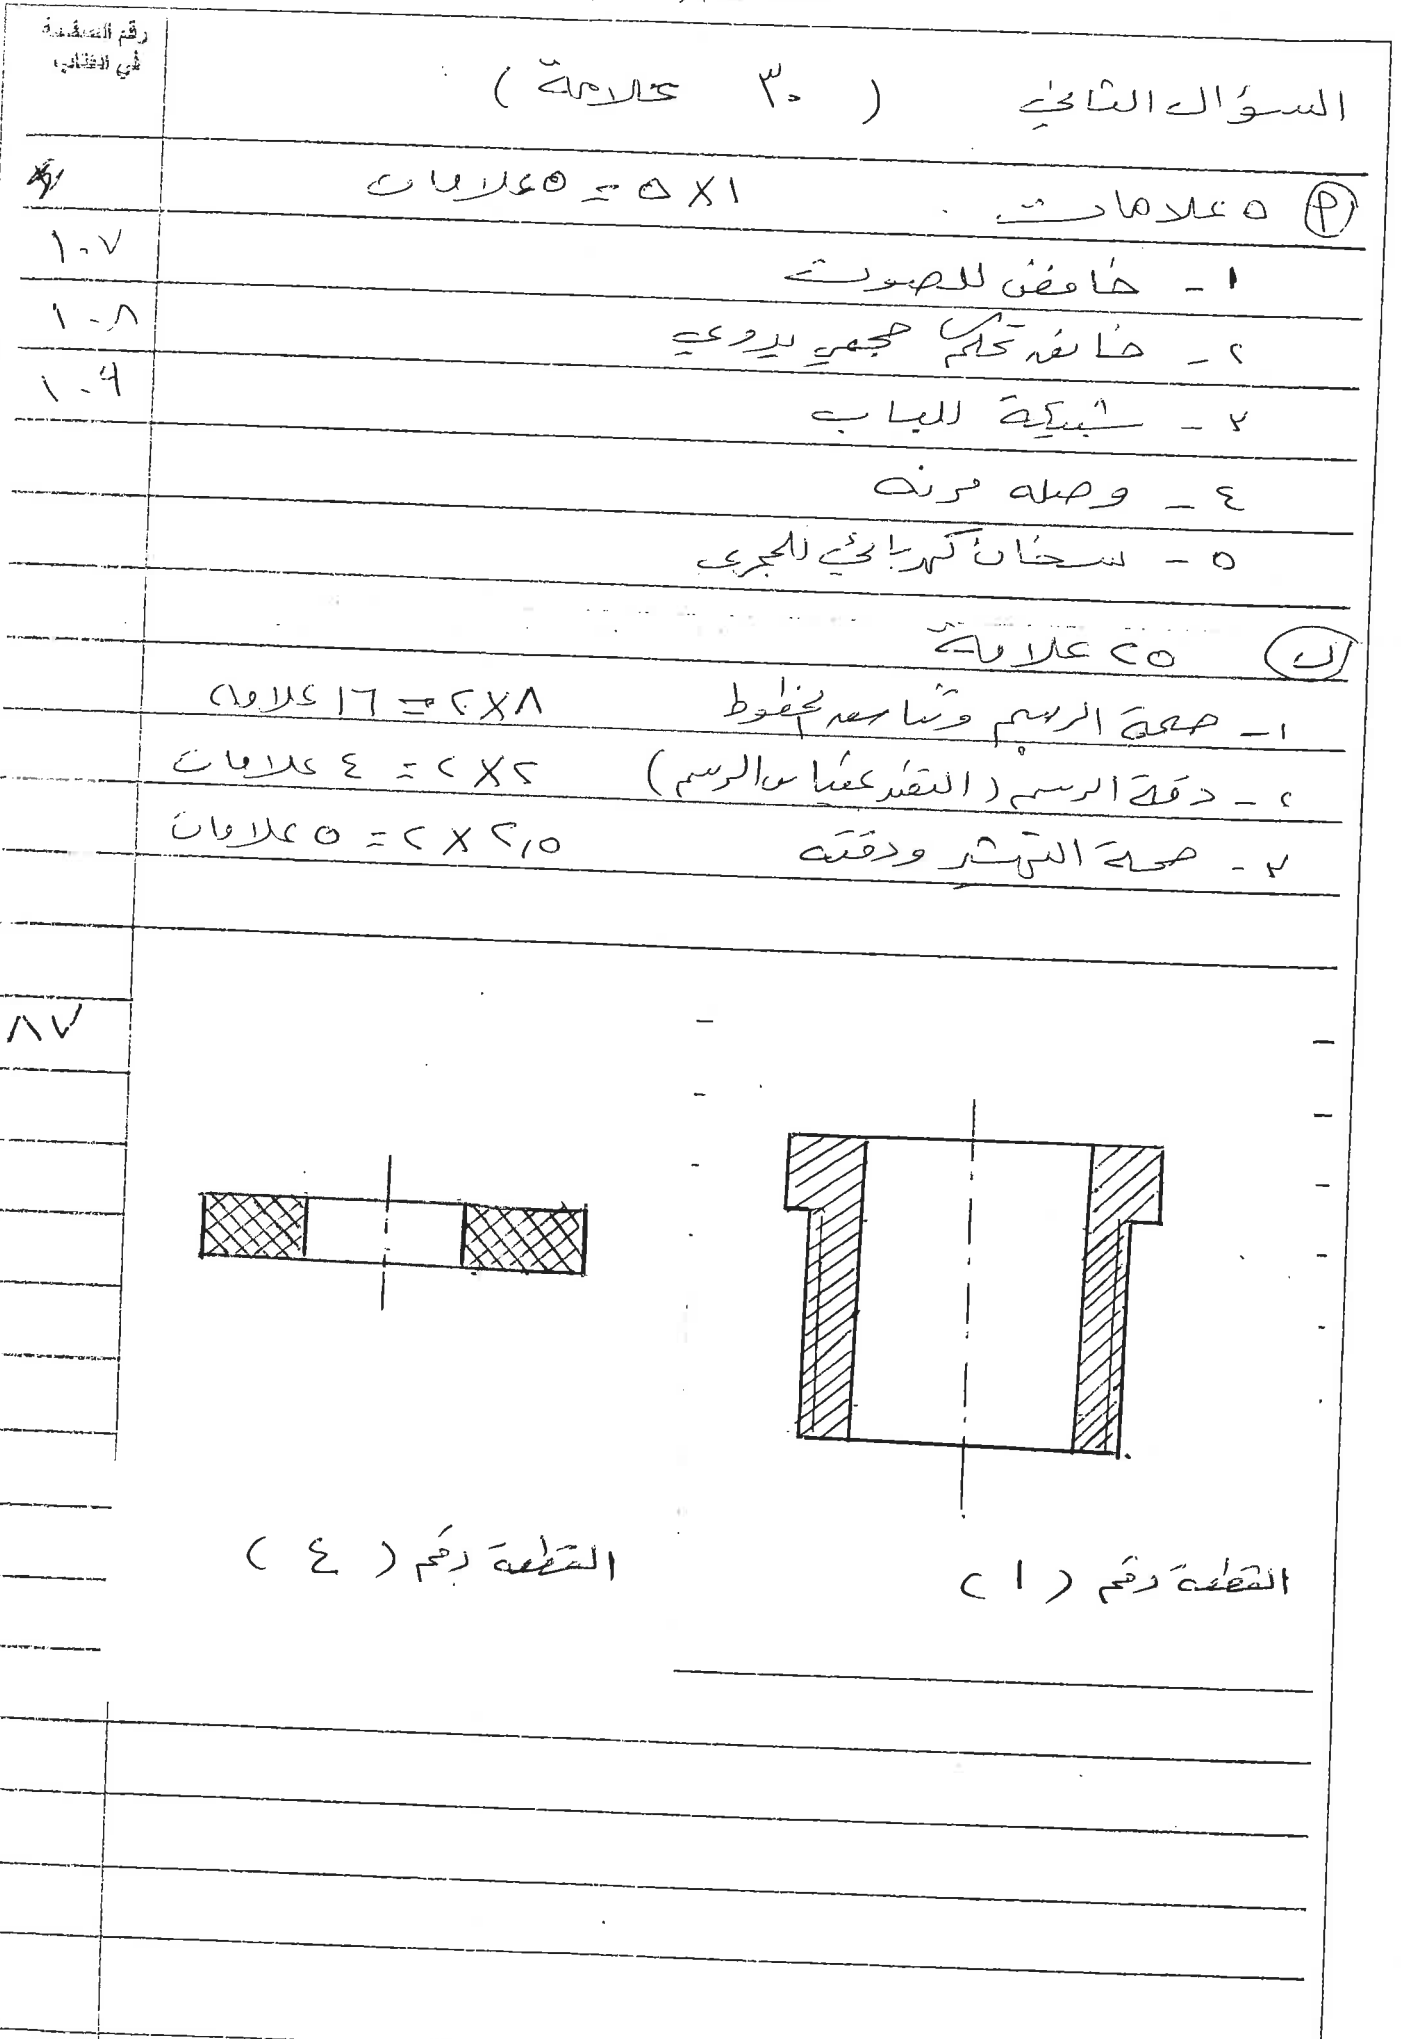 رقم الصفحة
في الكتاب
السؤال الثاني ( ٣٠ علامة )
أ ٥ علامات ١ × ٥ = ٥ علامات
١ - خافض للصوت ١٠٧
٢ - خانق تحكم حجمي يدوي ١٠٨
٣ - شبيكة للباب ١٠٩
٤ - وصله مرنه
٥ - سخان كهربائي للمجرى
ب ٢٥ علامة
١ - صحة الرسم وتناسق الخطوط ٨ × ٢ = ١٦ علامه
٢ - دقة الرسم ( التقيد بمقياس الرسم ) ٢ × ٢ = ٤ علامات
٣ - صحة التهشير ودقته ٢,٥ × ٢ = ٥ علامات
٨٧
القطعة رقم ( ١ )
القطعة رقم ( ٤ )